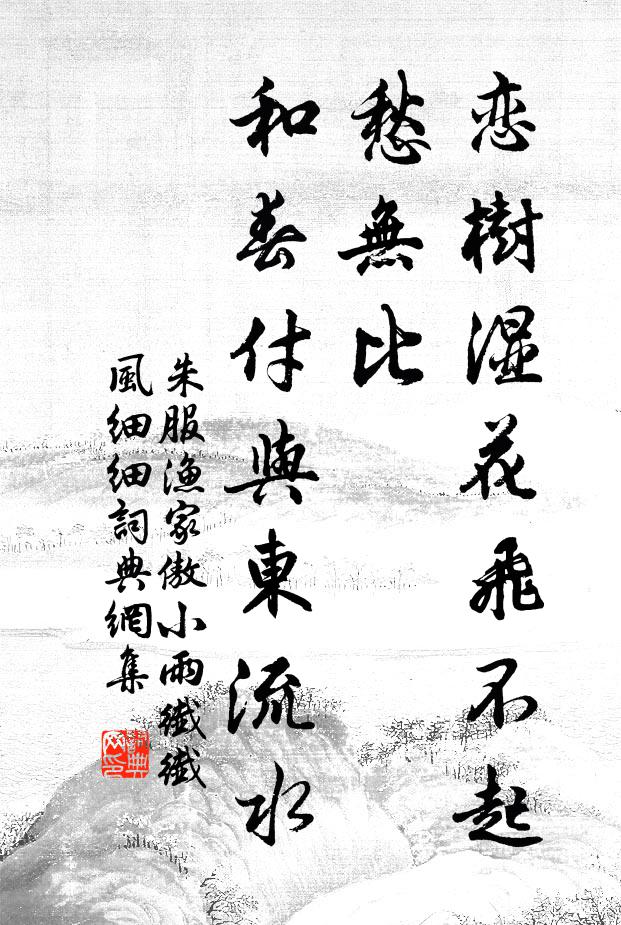 恋樹湿花飛不起
愁無比
和春付與東流水
朱服漁家傲小雨纖纖
風細細詞典網集
詞典網印